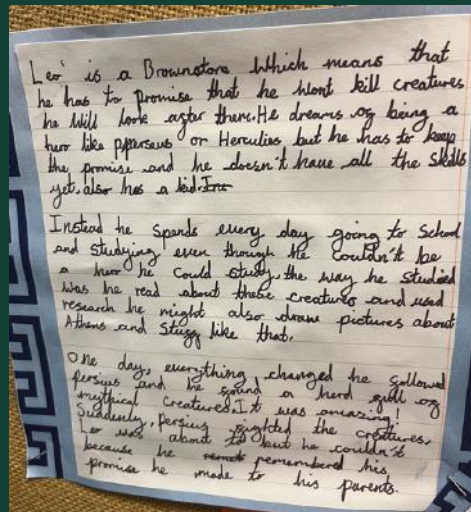 Leo is a Brownstore Which means that
he has to promise that he wont kill creatures
he will look after them. He dreams of being a
huro like pperseus or Herculies but he has to keep
the promise and he doesn't have all the skills
yet, also hes a kid.
Instead he spands every day going to School
and studying even though he couldn't be
a huro he could study, the way he studied
was he read about these creatures and used
research he might also draw pictures about
Athens and Stuff like that.
One day, everything changed he followed
persius and he found a herd full of
mythical creatures. It was amazing!
Suddenly, persius fighted the creatures,
Leo was about to but he couldn't
because he remembered his
promise he made to his parents.